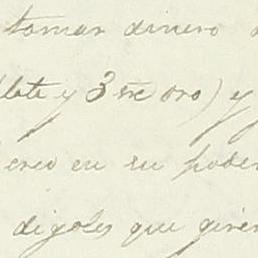 tomar dinero
plata y 3 de oro) y
creo en su poder
digoles que giren